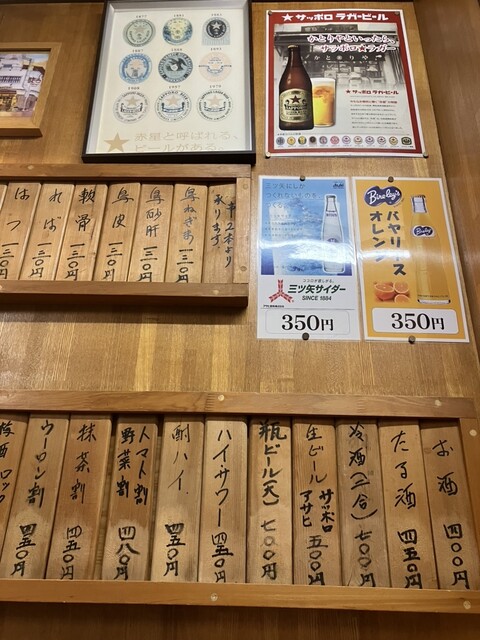 1877
赤星と呼ばれる、
ビールがある。
★サッポロ ラガービール
かとりやといったら、
「サッポロ★ラガー」
かとりや
★サッポロ ラガービール
串2本より
承ります。
鳥ねぎま 一三〇円
鳥砂肝 一三〇円
鳥皮 一三〇円
軟骨 一三〇円
ればー 一三〇円
はつ 一三〇円
三ツ矢にしか
つくれないもの。
Asahi
三ツ矢サイダー
SINCE 1884
350円
Bireley's
バヤリース
オレンジ
350円
お酒 四〇〇円
たる酒 四五〇円
冷酒(二合) 七〇〇円
生ビール サッポロ アサヒ 五〇〇円
瓶ビール(大) 七〇〇円
ハイサワー 四五〇円
酎ハイ 四五〇円
トマト割
野菜割 四八〇円
抹茶割 四五〇円
ウーロン割 四五〇円
梅酒ロック